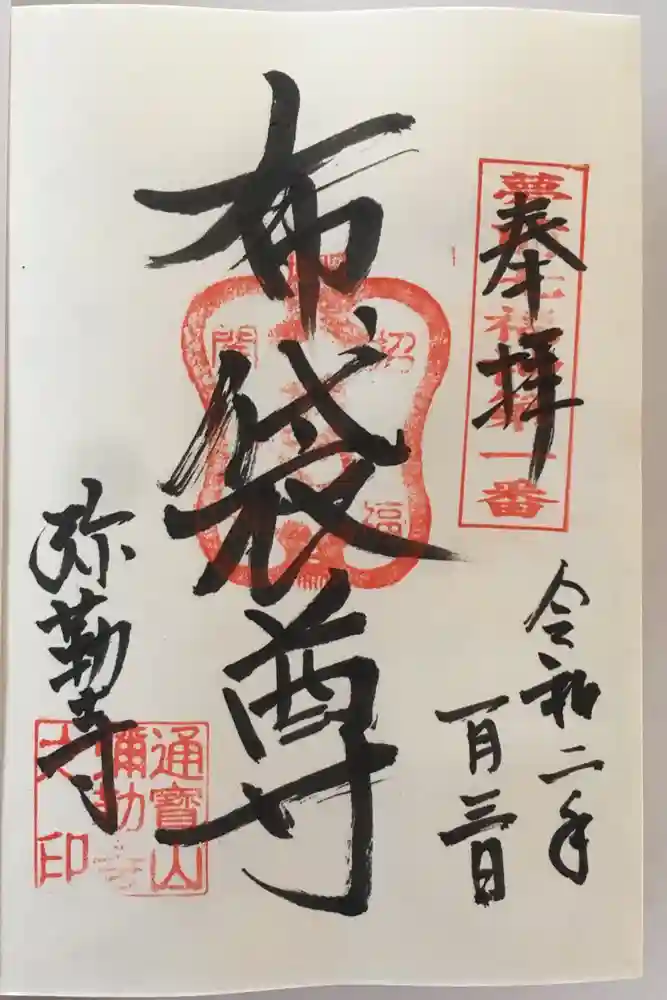 奉拝
七福
第一番
令和二年
一月三日
布袋尊
招
福
開
弥勒寺
通寶山
彌勒寺
大印